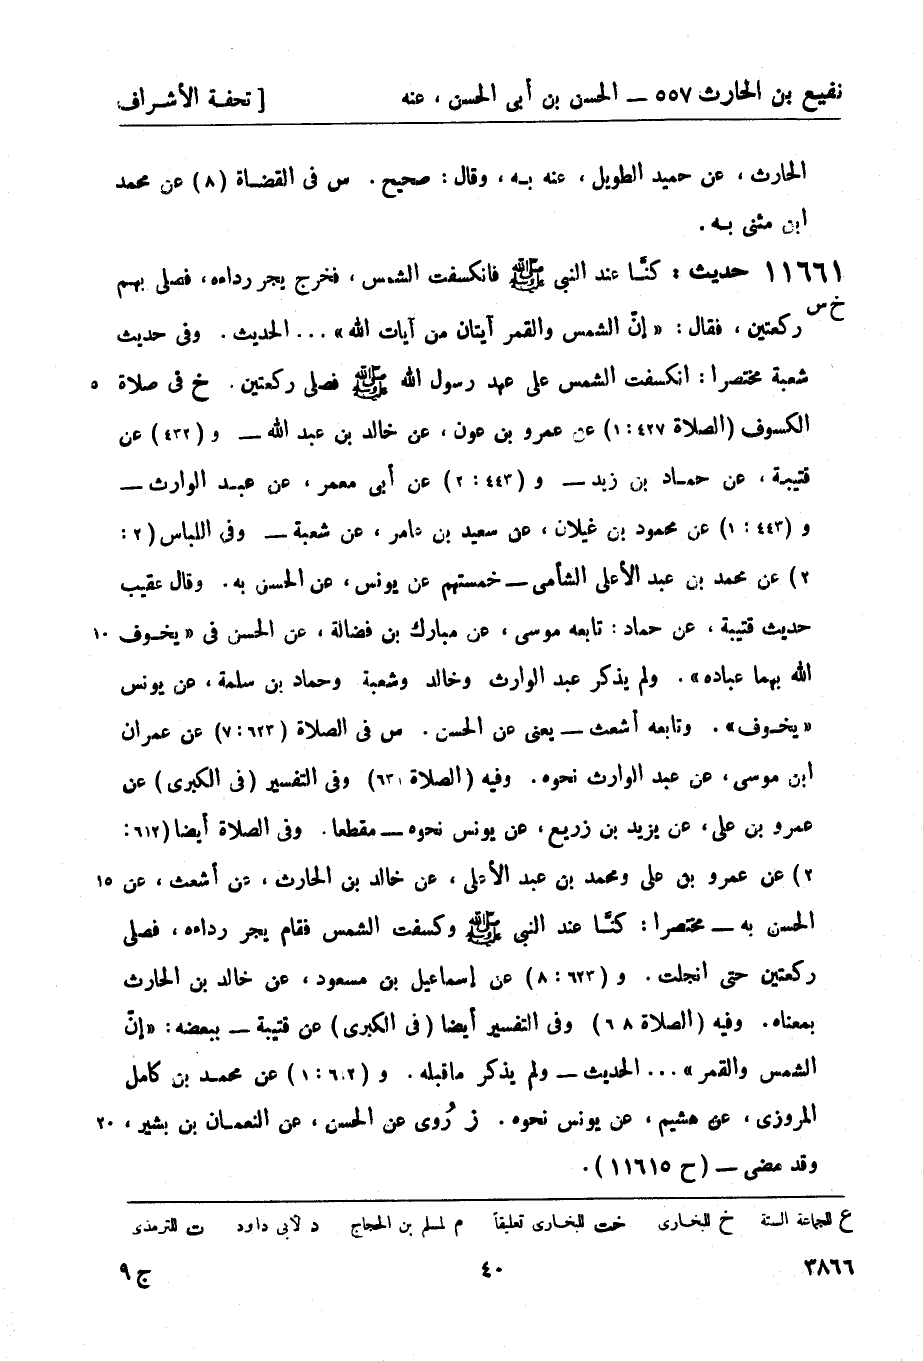 نفيع بن الحارث ٥٥٧ — الحسن بن أبى الحسن ، عنه [ تحفة الأشراف
الحارث ، عن حميد الطويل ، عنه به ، وقال : صحيح . س فى القضاة (٨) عن محمد
ابن مثنى به .
١١٦٦١ حديث : كنَّا عند النبى ﷺ فانكسفت الشمس ، فخرج يجر رداءه ، فصلى بهم
خ س ركعتين ، فقال : « إنّ الشمس والقمر آيتان من آيات الله » ... الحديث . وفى حديث
شعبة مختصرا : انكسفت الشمس على عهد رسول الله ﷺ فصلى ركعتين . خ فى صلاة ٥
الكسوف (الصلاة ٤٢٧ : ١) عن عمرو بن عون ، عن خالد بن عبد الله — و (٤٣٢) عن
قتيبة ، عن حماد بن زيد — و (٤٤٣ : ٢) عن أبى معمر ، عن عبد الوارث —
و (٤٤٣ : ١) عن محمود بن غيلان ، عن سعيد بن عامر ، عن شعبة — وفى اللباس (٢ :
٢) عن محمد بن عبد الأعلى الشامى — خمستهم عن يونس ، عن الحسن به . وقال عقيب
حديث قتيبة ، عن حماد : تابعه موسى ، عن مبارك بن فضالة ، عن الحسن فى « يخوف ١٠
الله بهما عباده » . ولم يذكر عبد الوارث وخالد وشعبة وحماد بن سلمة ، عن يونس
« يخوف » . وتابعه أشعث — يعنى عن الحسن . س فى الصلاة (٦٢٣ : ٧) عن عمران
ابن موسى ، عن عبد الوارث نحوه . وفيه (الصلاة ٦٣١) وفى التفسير (فى الكبرى) عن
عمرو بن على ، عن يزيد بن زريع ، عن يونس نحوه — مقطعا . وفى الصلاة أيضا (٦١٢ :
٢) عن عمرو بن على ومحمد بن عبد الأعلى ، عن خالد بن الحارث ، عن أشعث ، عن ١٥
الحسن به — مختصرا : كنَّا عند النبى ﷺ وكسفت الشمس فقام يجر رداءه ، فصلى
ركعتين حتى انجلت . و (٦٢٣ : ٨) عن إسماعيل بن مسعود ، عن خالد بن الحارث
بمعناه . وفيه (الصلاة ٦٠٨) وفى التفسير أيضا (فى الكبرى) عن قتيبة — ببعضه : « إنّ
الشمس والقمر » ... الحديث — ولم يذكر ماقبله . و (٦٠٢ : ١) عن محمد بن كامل
المروزى ، عن هشيم ، عن يونس نحوه . ز رُوى عن الحسن ، عن النعمان بن بشير ، ٢٠
وقد مضى — (ح ١١٦١٥) .
ع للجماعة الستة خ للبخارى خت للبخارى تعليقاً م لمسلم بن الحجاج د لأبى داود ت للترمذى
٣٨٦٦ ٤٠ ج ٩